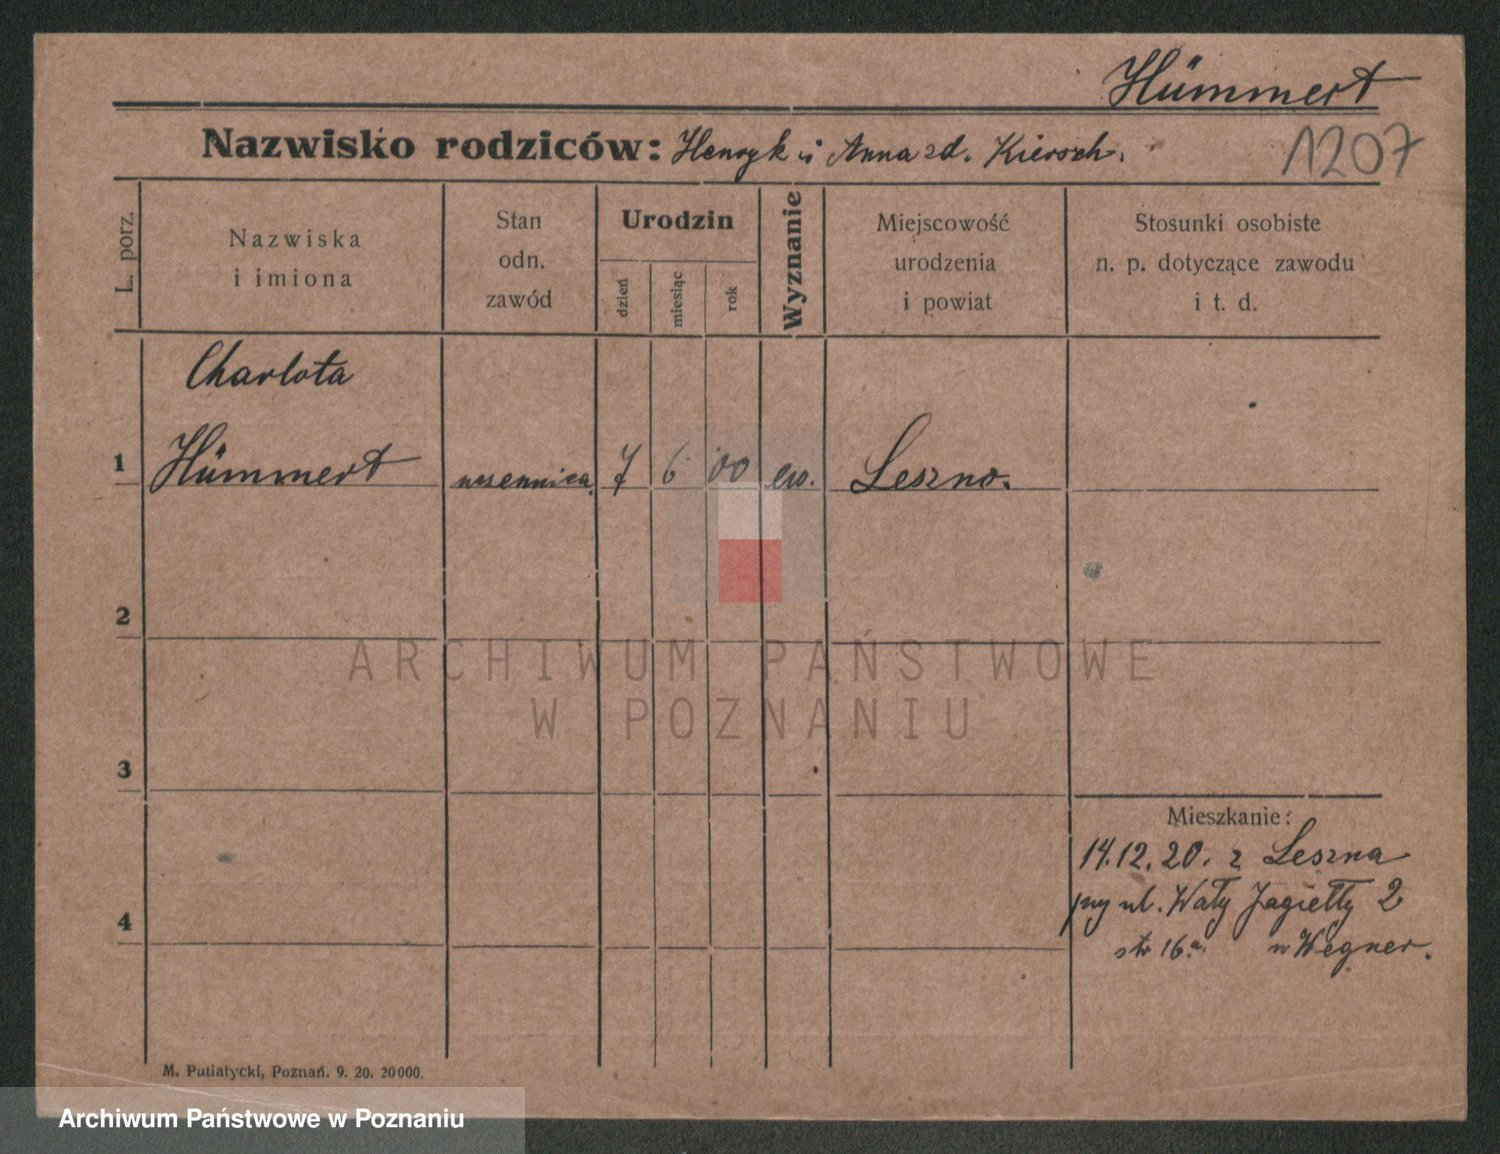 Hümmert
Nazwisko rodziców: Henryk i Anna zd. Kiersch.
1207
L. porz.
Nazwiska
i imiona
Stan
odn.
zawód
Urodzin
dzień
miesiąc
rok
Wyznanie
Miejscowość
urodzenia
i powiat
Stosunki osobiste
n. p. dotyczące zawodu
i t. d.
Charlota
1 Hümmert uczennica 7 6 00 ew. Leszno.
2
ARCHIWUM PAŃSTWOWE
W POZNANIU
3
Mieszkanie:
14.12.20. z Leszna
przy ul. Wały Jagiełły 2
4
str 16a. u Wegner.
M. Putiatycki, Poznań. 9. 20. 20000.
Archiwum Państwowe w Poznaniu